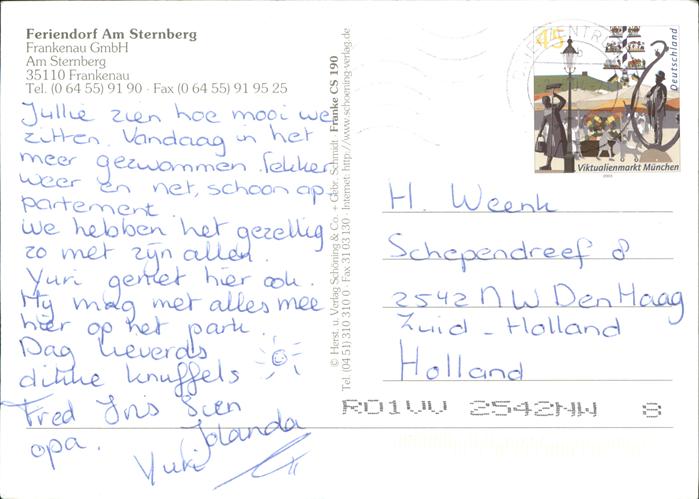 Feriendorf Am Sternberg
Frankenau GmbH
Am Sternberg
35110 Frankenau
Tel. (0 64 55) 91 90 · Fax (0 64 55) 91 95 25
Jullie zien hoe mooi we
zitten. Vandaag in het
meer gezwommen. lekker
weer en net, schoon ap
partement.
we hebben het gezellig
zo met zijn allen.
Yuri geniet hier ook.
Hy mag met alles mee
hier op het park.
Dag lieverds
dikke knuffels
Fred Iris Sien
opa. Jolanda
Yuri
© Herst. u. Verlag Schöning & Co. + Gebr. Schmidt Franke CS 190
Tel. (04 51) 310 310 0 · Fax 31 03 130 · Internet: http://www.schoening-verlag.de
45
Deutschland
Viktualienmarkt München
2003
H. Weenk
Schependreef 8
2542 NW Den Haag
Zuid - Holland
Holland
2542NW 8